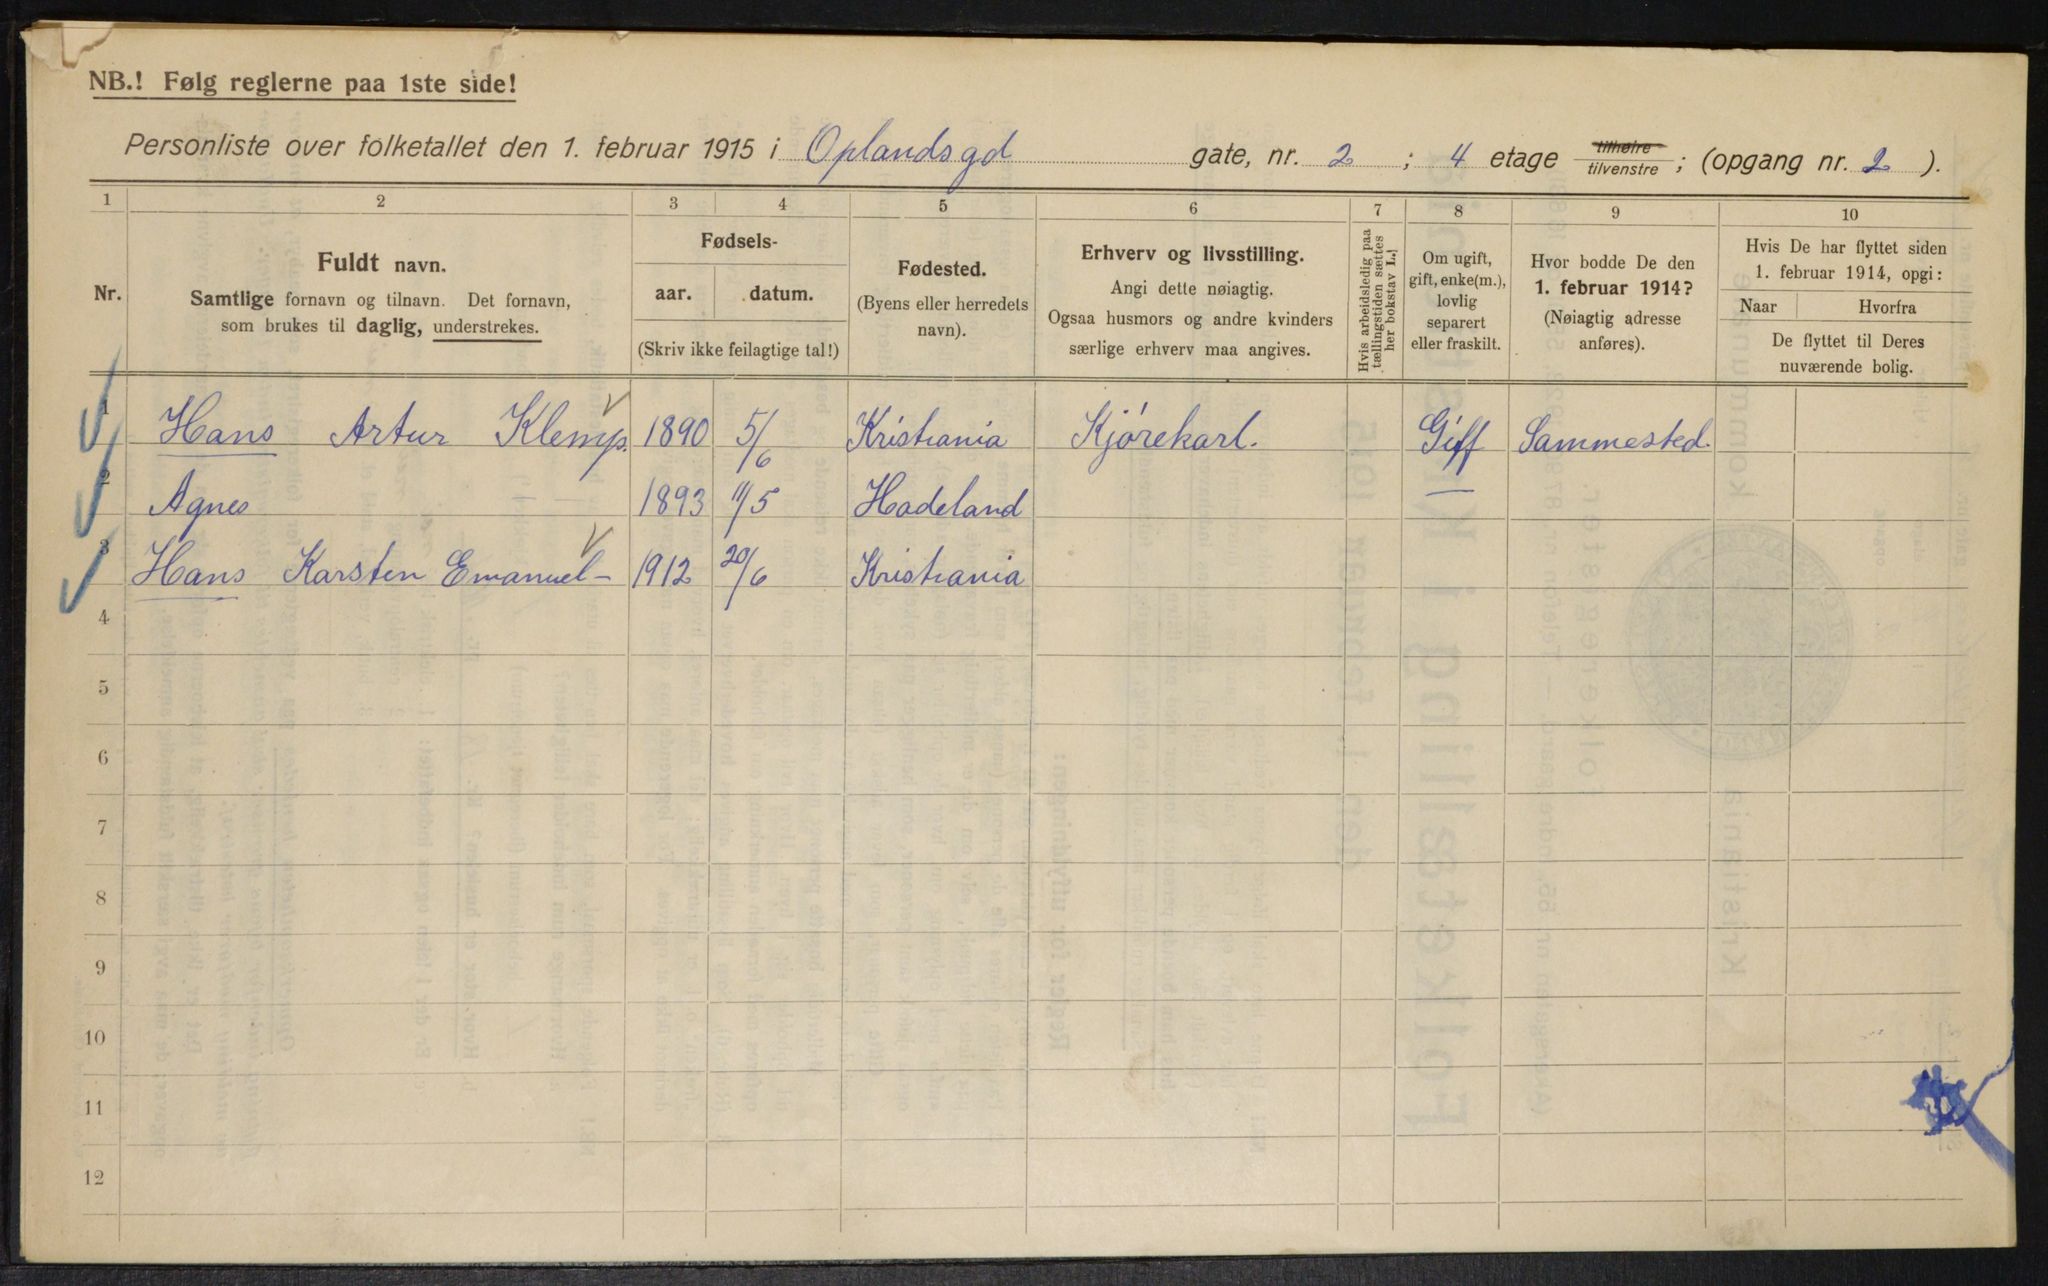 NB.! Følg reglerne paa 1ste side!
Personliste over folketallet den 1. februar 1915 i Oplandsgd gate, nr. 2 ; 4 etage tilhøire / tilvenstre ; (opgang nr. 2 ).
1 2 3 4 5 6 7 8 9 10
Nr.
Fuldt navn.
Samtlige fornavn og tilnavn. Det fornavn,
som brukes til daglig, understrekes.
Fødsels-
aar. datum.
(Skriv ikke feilagtige tal!)
Fødested.
(Byens eller herredets
navn).
Erhverv og livsstilling.
Angi dette nøiagtig.
Ogsaa husmors og andre kvinders
særlige erhverv maa angives.
Hvis arbeidsledig paa
tællingstiden sættes
her bokstav L.!
Om ugift,
gift, enke(m.),
lovlig
separert
eller fraskilt.
Hvor bodde De den
1. februar 1914?
(Nøiagtig adresse
anføres).
Hvis De har flyttet siden
1. februar 1914, opgi:
Naar Hvorfra
De flyttet til Deres
nuværende bolig.
1 Hans Artur Klemp. 1890 5/6 Kristiania Kjørekarl. Gift Sammested.
2 Agnes 1893 11/5 Hadeland
3 Hans Karsten Emanuel - 1912 20/6 Kristiania
4
5
6
7
8
9
10
11
12